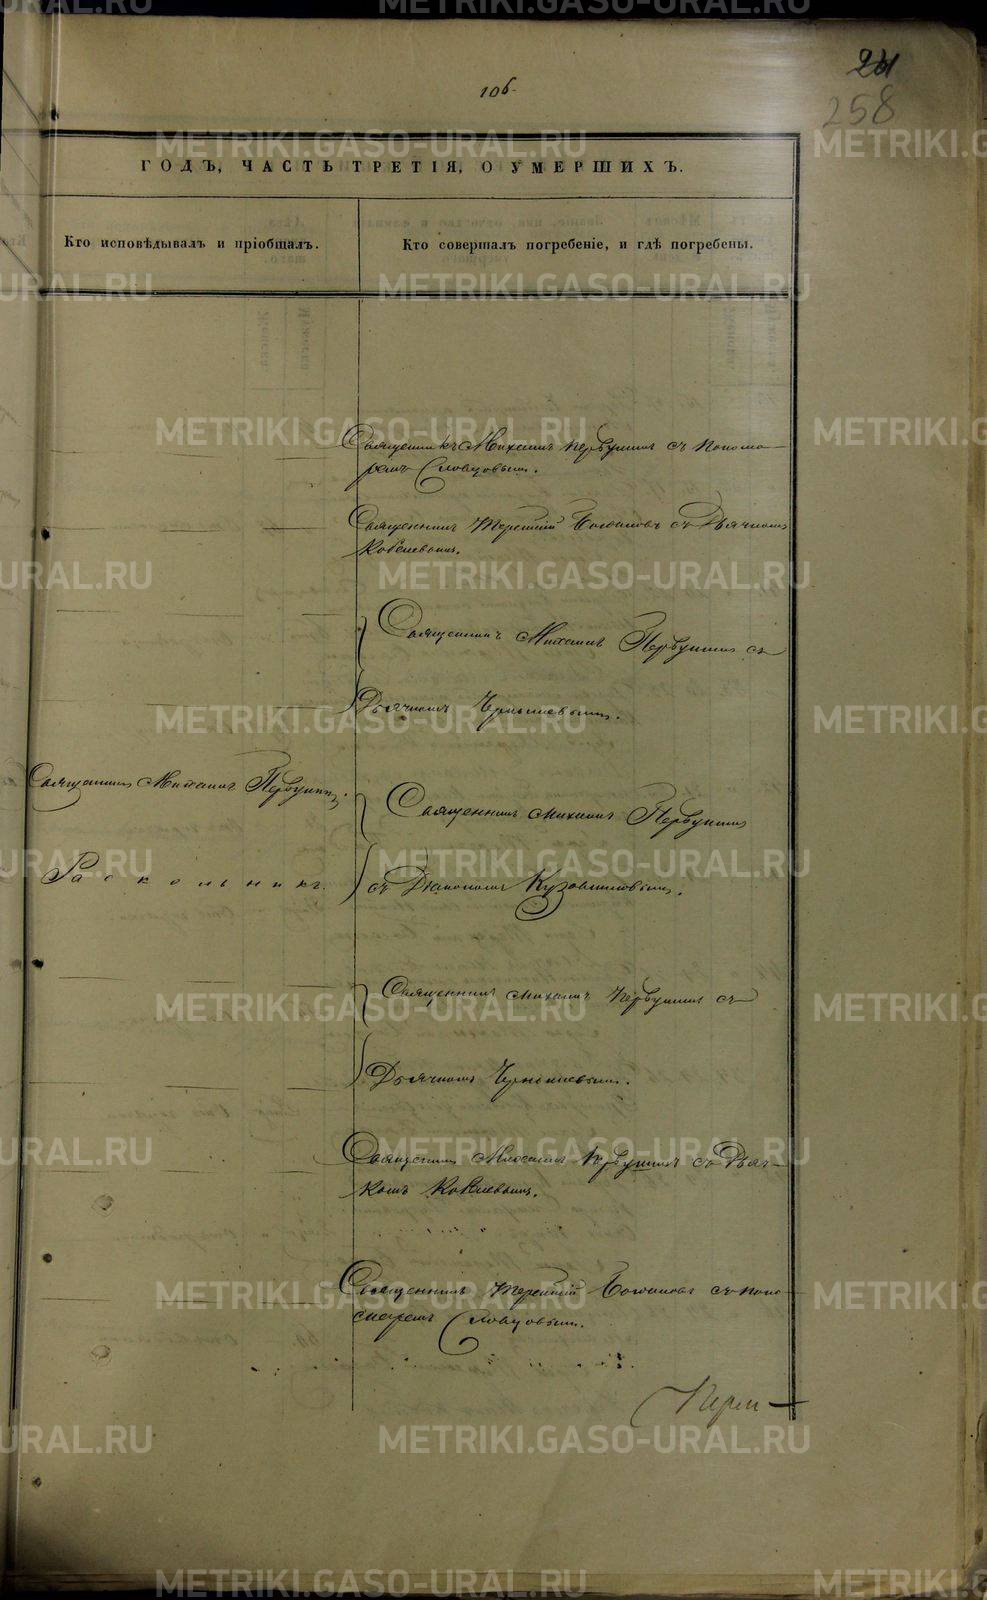 106.
24
258
ГОДЪ, ЧАСТЬ ТРЕТІЯ, О УМЕРШИХЪ.
Кто исповѣдывалъ и пріобщалъ.
Кто совершалъ погребеніе, и гдѣ погребены.
Священникъ Михаилъ Первушинъ съ Понома-
ремъ Словцовымъ.
Священникъ Терентій съ Дьячкомъ
Кобелевымъ.
Священникъ Михаилъ Первушинъ съ
Дьячкомъ Чернышевымъ.
Священникъ Михаилъ Первушинъ.
Священникъ Михаилъ Первушинъ
Раскольникъ.
съ Діакономъ Кузовниковымъ.
Священникъ Михаилъ Первушинъ съ
Дьячкомъ Чернышевымъ.
Священникъ Михаилъ Первушинъ съ Дьяч-
комъ Кобелевымъ.
Священникъ Терентій съ Поно-
маремъ Словцовымъ.
METRIKI.GASO-URAL.RU